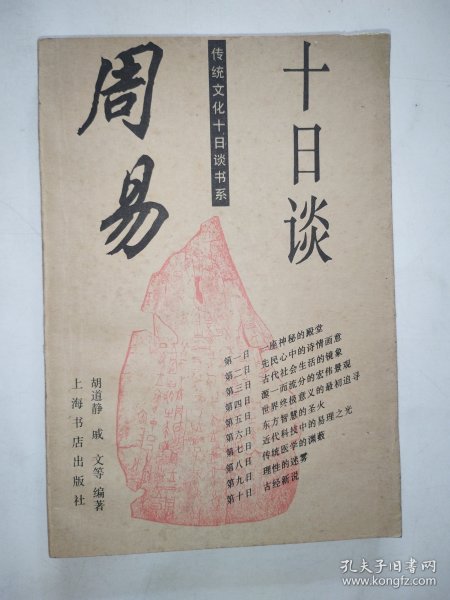 周易
十日谈
传统文化十日谈书系
第一日 一座神秘的殿堂
第二日 先民心中的诗情画意
第三日 古代社会生活的镜象
第四日 源一而流分的宏伟景观
第五日 世界终极意义的最初追寻
第六日 东方智慧的圣火
第七日 近代科技中的易理之光
第八日 传统医学的渊薮
第九日 理性的迷雾
第十日 古经新说
胡道静 戚文等编著
上海书店出版社
孔夫子旧书网
www.kongfz.com